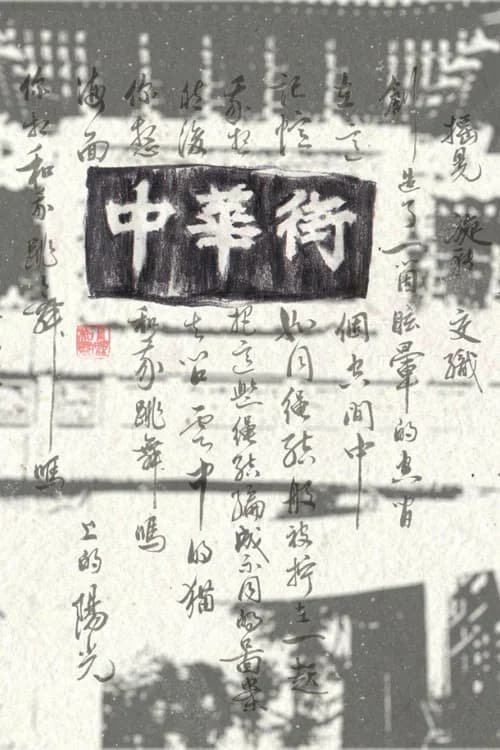 搖晃 旋轉 交織
創造了一個眩暈的空間
在這個空間中
記憶如同繩結般被拧在一起
我想把這些繩結編成不同的圖案
然後去问雲中的猫
你想和我跳舞嗎
海面上的陽光
你想和我跳舞嗎
中華街